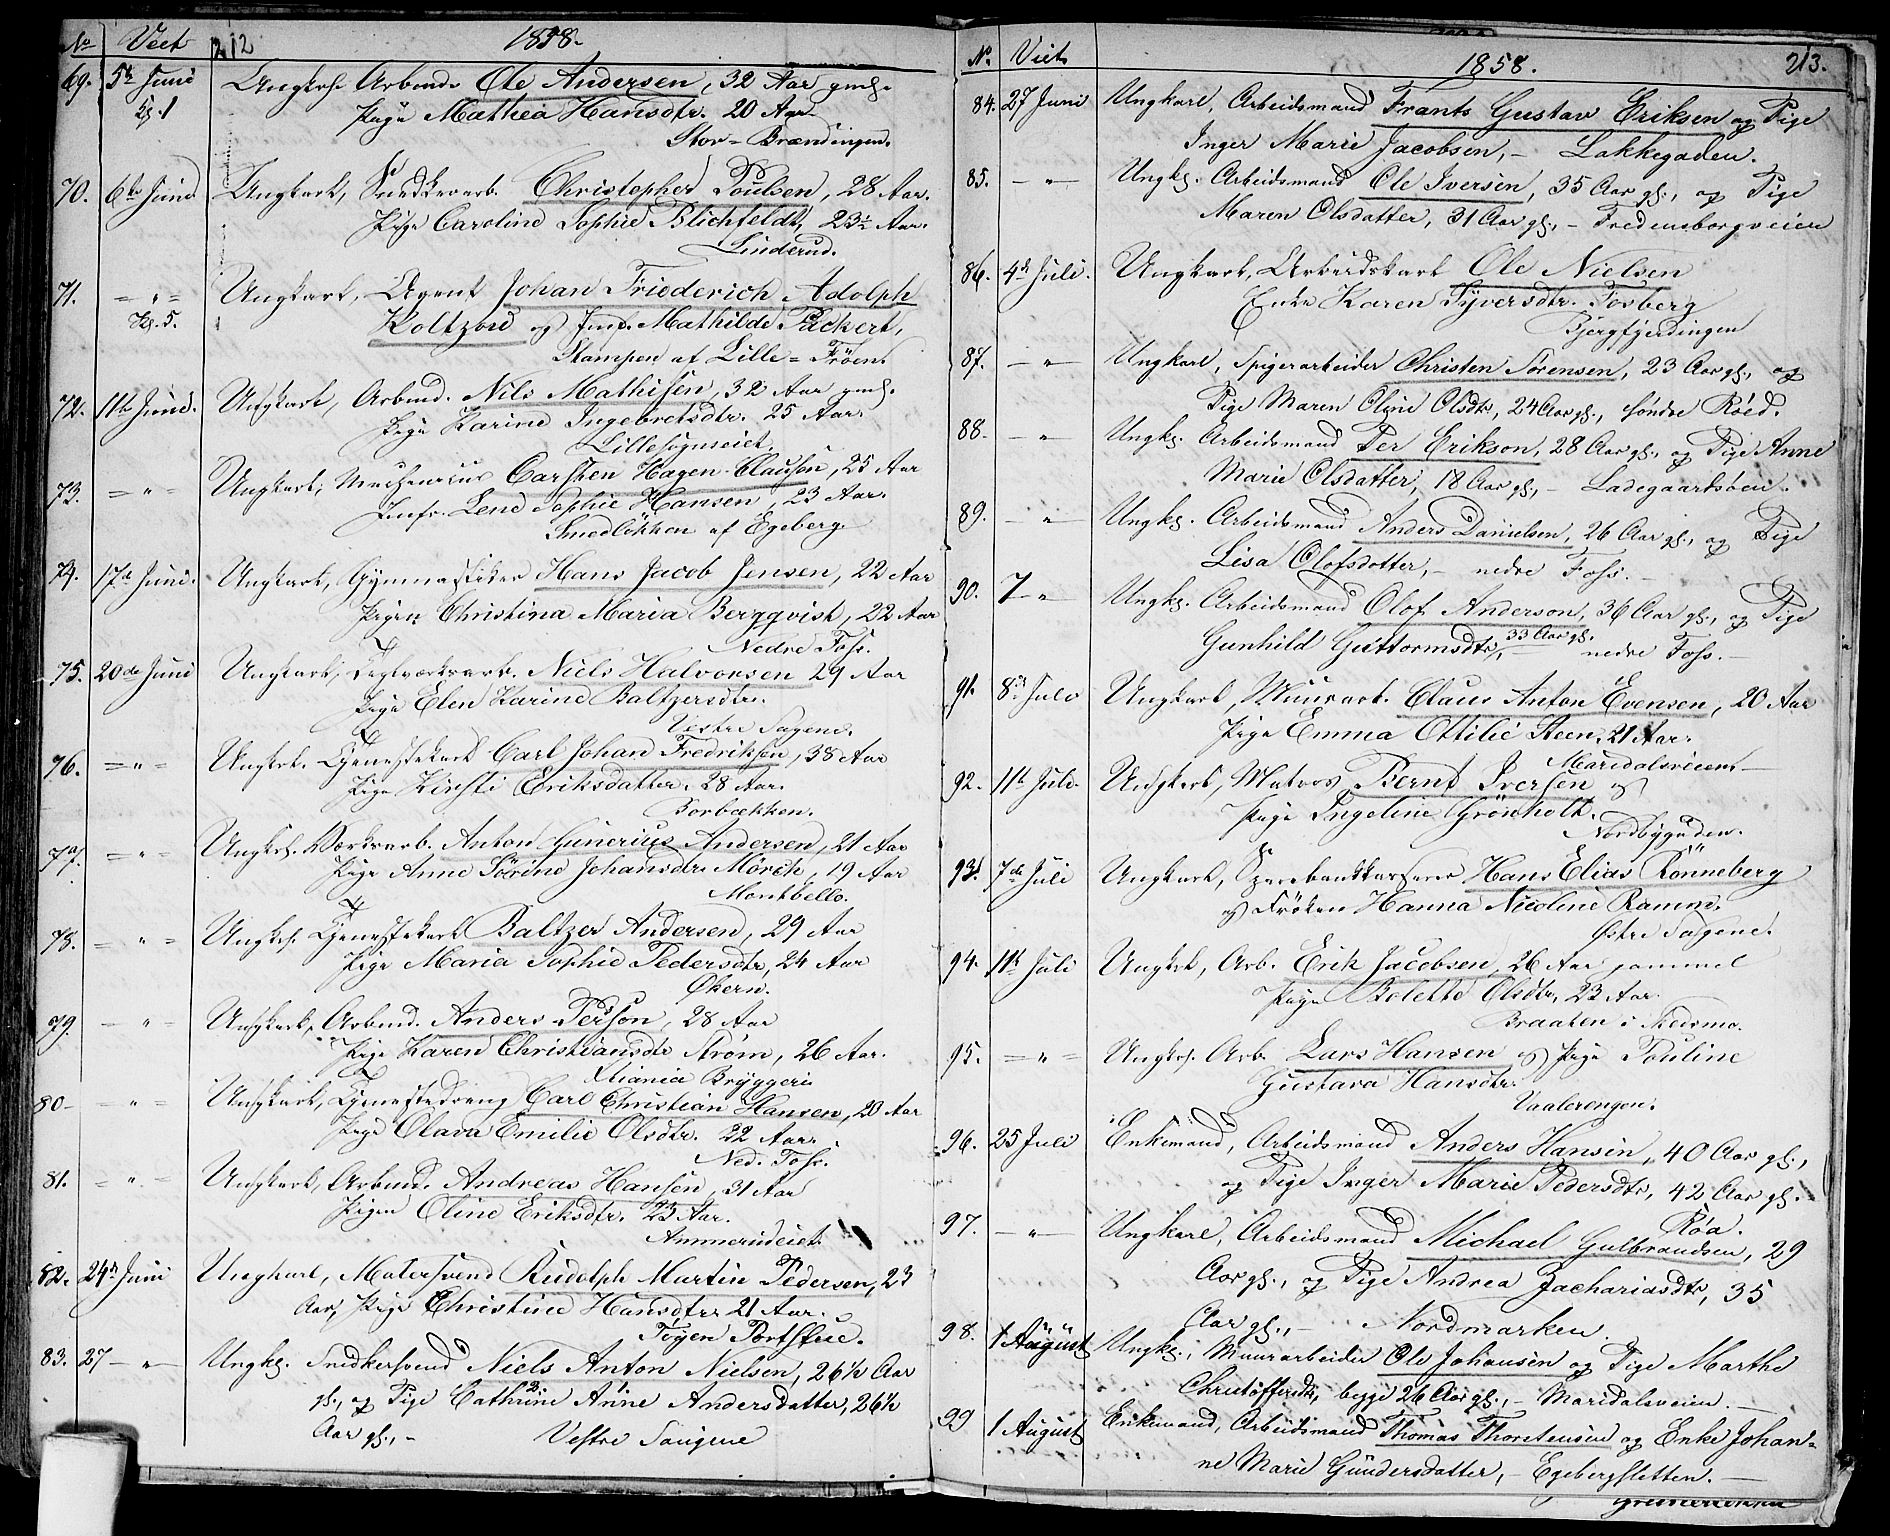 No Viet 212 1858.
69. 5te Juni Ungkrl. Arbmd. Ole Andersen, 32 Aar gml.
Kg. 1 Pige Mathea Hansdtr. 20 Aar
Stor-Brændingen.
70. 6te Juni Ungkarl, Snedkerarb. Christopher Poulsen, 28 Aar.
Pige Caroline Sophie Blichfeldt, 23½ Aar.
Linderud.
71. " Ungkarl, Agent Johan Friederich Adolph
Kg. 5. Koltzow og Jmf. Mathilde Packert,
Stampen af Lille-Frøen.
72. 11te Juni. Ungkarl, Arbmd. Nils Mathisen, 32 Aar gml.
Pige Karine Ingebretsdtr. 25 Aar.
Lillesogneiet
73. " Ungkarl, Mechanicus Carsten Hagen Clausen, 25 Aar
Jmfr. Lene Sophie Hansen, 23 Aar.
Smedløkken af Egeberg.
74. 17de Juni. Ungkarl, Gymnastiker Hans Jacob Jensen, 22 Aar
Pigen Christina Maria Bergqvist, 22 Aar
Nedre Foss.
75. 20de Juni Ungkarl, Teglværksarb. Niels Halvorsen 29 Aar
Pige Elen Karine Baltzersdtr.
Vestre Sagene.
76. " Ungkrl. Tjenestekarl Carl Johan Fredriksen, 38 Aar
Pige Kirsti Eriksdatter. 28 Aar.
Borbækken.
77. " Ungkrl. Værksarb. Anton Gunerius Andersen, 21 Aar
Pige Anne Sørine Johansdtr Mörch, 19 Aar
Montbello.
78. " Ungkrl. Tjenestekarl Baltzer Andersen, 29 Aar
Pige Maria Sophie Pedersdtr, 24 Aar
Økern.
79. " Ungkarl, Arbmd. Anders Person, 28 Aar
Pige Karen Christiansdtr Strøm, 26 Aar.
Xtiania Bryggeri
80 " Ungkarl, Tjenestedreng Carl Christian Hansen, 20 Aar
Pige Olava Emilie Olsdtr. 22 Aar.
Ned. Foss.
81. " Ungkarl, Arbmd. Andreas Hansen, 31 Aar
Pigen Oline Eriksdtr. 23 Aar.
Ammerudeiet
82. 24de Juni Ungkarl, Malersvend Rudolph Martin Pedersen, 23
Aar, Pige Christine Hansdtr 21 Aar.
Töyen Portstue.
83. 27 " Ungkl. Snedkersvend Niels Anton Nielsen, 26½ Aar
gl., og Pige Cathrine Anne Andersdatter, 26½
Aar gl., - Vestre Saugene
No. Viet 1858. 213.
84. 27 Juni Ungkarl, Arbeidsmand Frants Gustav Eriksen og Pige
Inger Marie Jacobsen, - Lakkegaden.
85. " Ungkl. Arbeidsmand Ole Iversen, 35 Aar gl., og Pige
Maren Olsdatter, 31 Aar gl., - Fredensborgveien
86. 4de Juli. Ungkarl, Arbeidskarl Ole Nielsen
Enke Karen Syversdtr. Fosberg
Bjergfjerdingen
87. " Ungkarl, Spigerarbeider Christen Sörensen, 23 Aar gl., og
Pige Maren Oline Olsdtr, 24 Aar gl., söndre Röed.
88. " Ungkl. Arbeidsmand Per Erikson, 28 Aar gl., og Pige Anne
Marie Olsdatter, 18 Aar gl., - Ladegaardsöen.
89. " Ungkl. Arbeidsmand Anders Danielsen, 26 Aar gl., og Pige
Lisa Olofsdotter, - nedre Foss. -
90. 7 " Ungkl. Arbeidsmand Olof Anderson, 36 Aar gl., og Pige
Gunhild Guttormsdtr, 33 Aar gl. nedre Foss. -
91. 8de Juli Ungkarl, Muurarb. Claus Anton Evensen, 20 Aar
Pige Emma Ottilie Steen. 21 Aar.
Maridalsveien
92. 11te Juli. Ungkarl, Matros Bernt Iversen og
Pige Ingeline Grönholt.
Nordbygaden.
93. 7de Juli Ungkarl, Sparebankkasserer Hans Elias Rönneberg
og Fröken Hanna Nicoline Ramm.
Østre Sagene.
94. 11te Juli Ungkrl, Arb. Erik Jacobsen, 26 Aar gammel
Pige Bolette Olsdtr, 23 Aar.
Braaten i Skedsmo.
95. " Ungkrl. Arb. Lars Hansen og Pige Pauline
Gustava Hansdtr.
Vaalerengen.
96. 25 Juli Enkemand, Arbeidsmand Anders Hansen, 40 Aar gl.,
og Pige Inger Marie Pedersdtr, 42 Aar gl.
Röa.
97. " Ungkarl, Arbeidsmand Michael Gulbrandsen, 29
Aar gl., og Pige Andrea Zachariasdtr, 35
Aar gl., - Nordmarken.
98. 1 August Ungkl., Muurarbeider Ole Johansen og Pige Marthe
Christoffersdtr, begge 26 Aar gl., - Maridalsveien. -
99 1 August Enkemand, Arbeidsmand Thomas Thorstensen og Enke Johan-
ne Marie Gundersdatter, - Egebergsletten. -
Grünerløkken